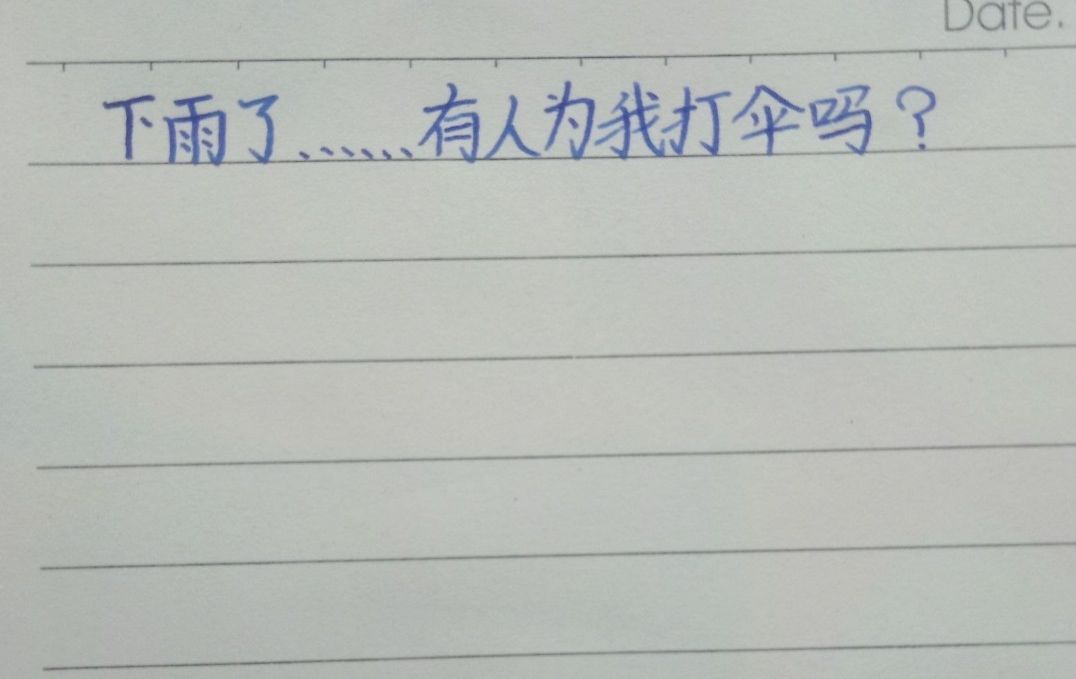 Date.
下雨了......有人为我打伞吗?